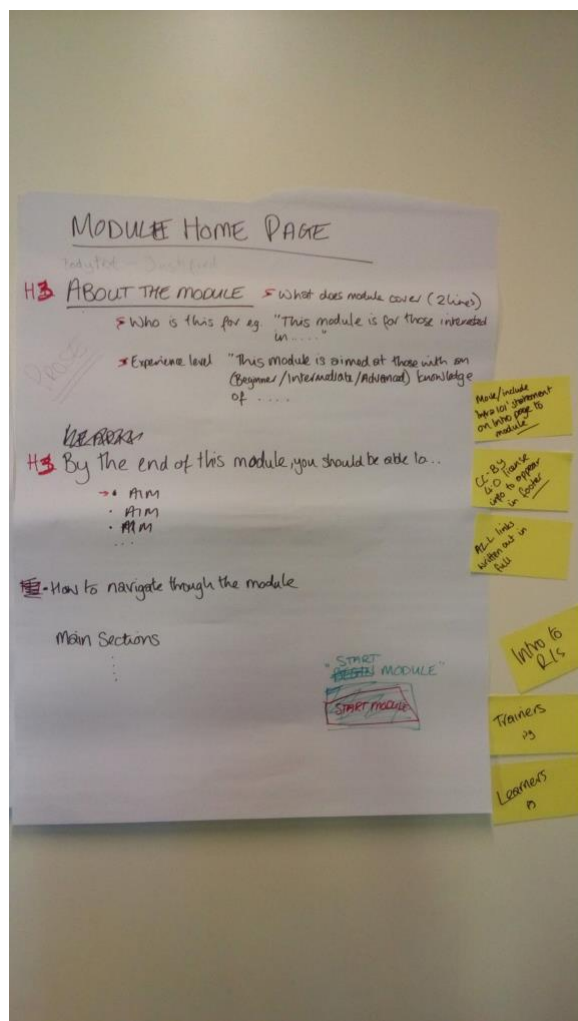 MODULE HOME PAGE
H3 ABOUT THE MODULE What does module cover (2 lines)
Who is this for eg. "This module is for those interested
in ....."
PROSE
Experience level "This module is aimed at those with an
(Beginner/Intermediate/Advanced) knowledge
of .....
H3 By the end of this module, you should be able to...
• AIM
• AIM
• AIM
...
- How to navigate through the module
Main Sections
"START
BEGIN MODULE"
START MODULE
Move/include
'Infra 101' statement
on Intro page to
module
CC-By
4.0 license
info to appear
in footer
ALL links
written out in
full
Intro to
RIs
Trainers
pg
Learners